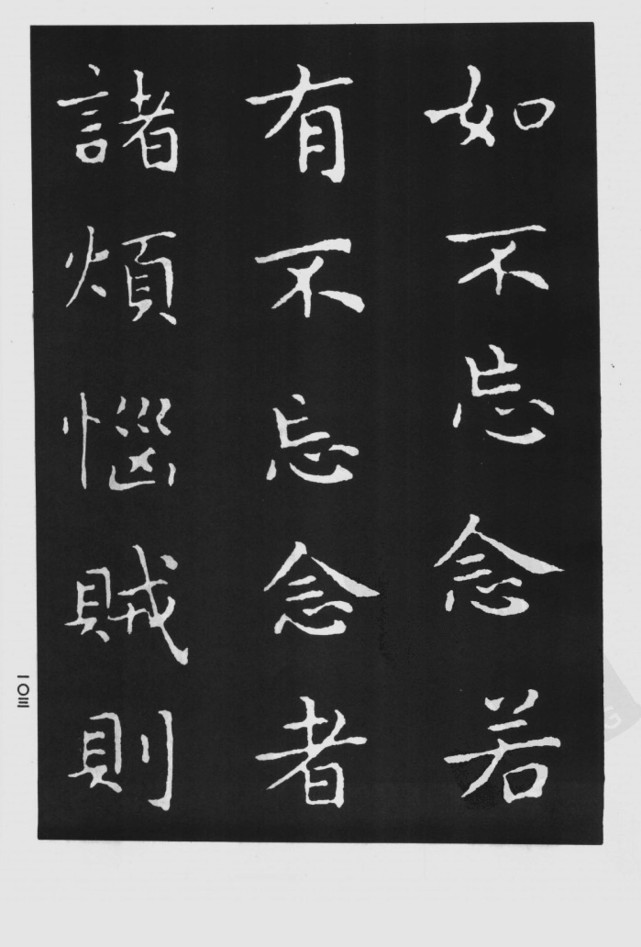 如不忘念若
有不忘念者
諸煩惱賊則
一〇三